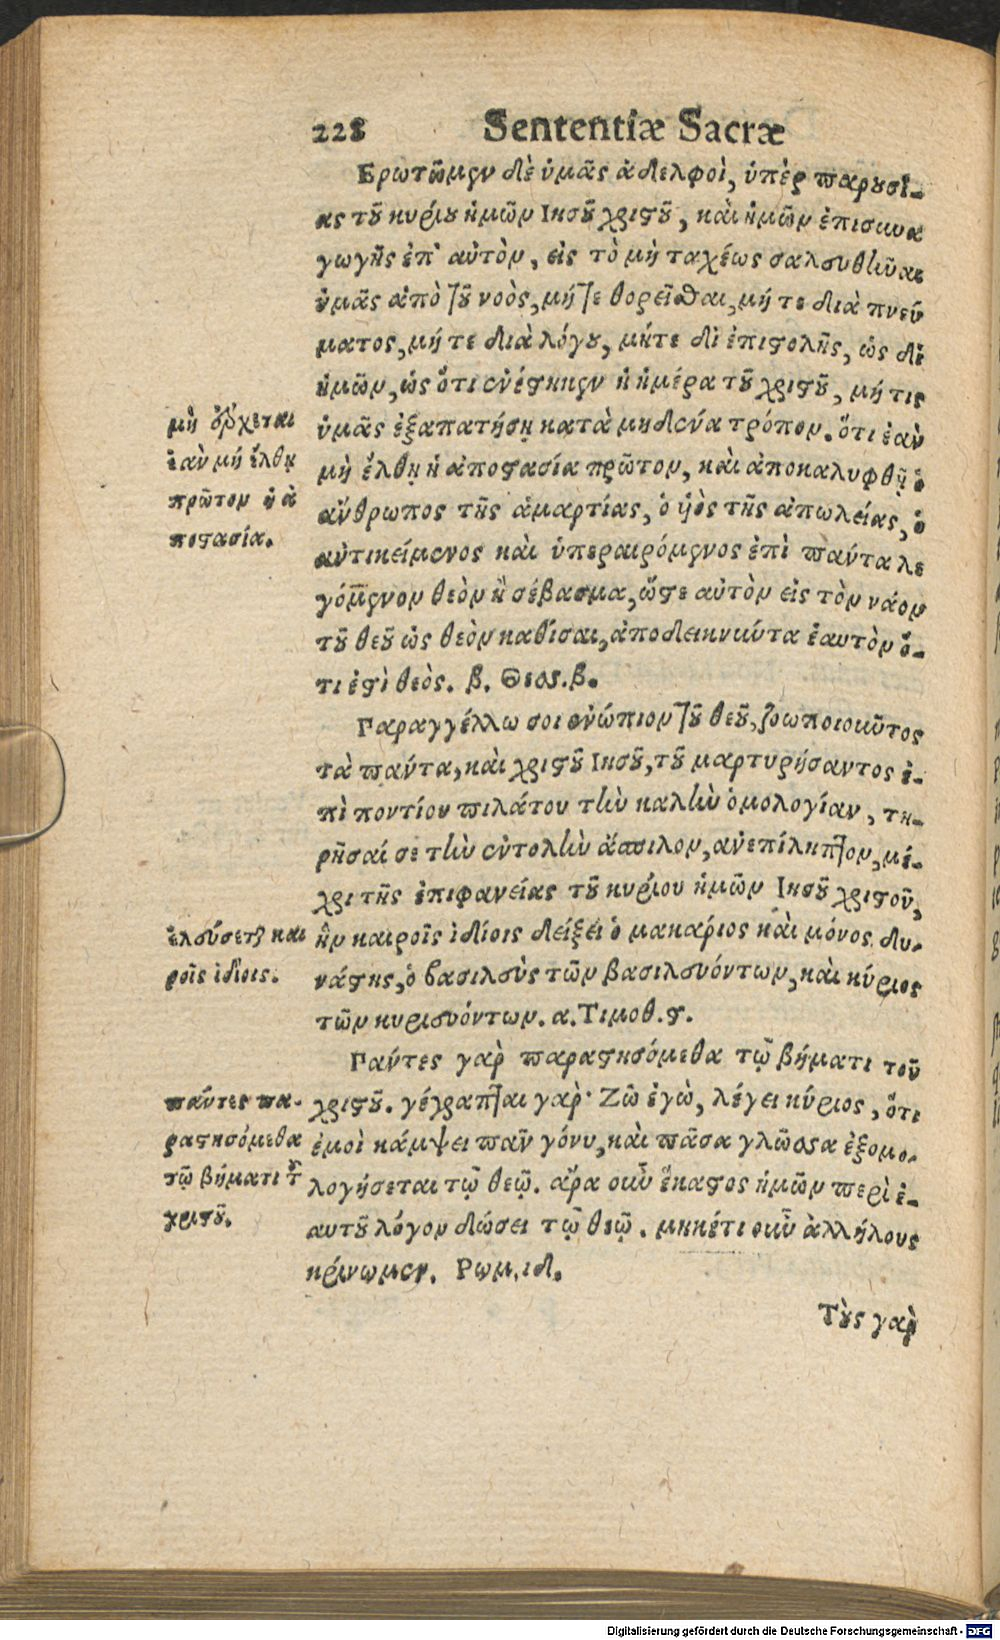 228 Sententiæ Sacræ
Ερωτῶμεν δὲ ὑμᾶς ἀδελφοὶ, ὑπὲρ παρουσί-
ας τοῦ κυρίου ἡμῶν Ιησοῦ χριστοῦ, καὶ ἡμῶν ἐπισυνα
γωγῆς ἐπ' αὐτὸν, εἰς τὸ μὴ ταχέως σαλευθῆναι
ὑμᾶς ἀπὸ τοῦ νοὸς, μήτε θορεῖσθαι, μήτε διὰ πνεύ
ματος, μήτε διὰ λόγου, μήτε δι ἐπιστολῆς, ὡς δι
ἡμῶν, ὡς ὅτι ἐνέστηκεν ἡ ἡμέρα τοῦ χριστοῦ, μή τις
ὑμᾶς ἐξαπατήσῃ κατὰ μηδένα τρόπον. ὅτι ἐὰν
μὴ ἔλθῃ ἡ ἀποστασία πρῶτον, καὶ ἀποκαλυφθῇ ὁ
ἄνθρωπος τῆς ἁμαρτίας, ὁ υἱὸς τῆς ἀπωλείας, ὁ
ἀντικείμενος καὶ ὑπεραιρόμενος ἐπὶ πάντα λε
γόμενον θεὸν ἢ σέβασμα, ὥστε αὐτὸν εἰς τὸν νάον
τοῦ θεοῦ ὡς θεὸν καθίσαι, ἀποδεικνύντα ἑαυτὸν ὅ-
τι ἐστὶ θεὸς. β. Θεσ. β.
μὴ ἔρχεται
ἐὰν μή ἔλθῃ
πρῶτον ἡ ἀ
ποστασία.
Παραγγέλλω σοι ἐνώπιον τοῦ θεοῦ, ζωοποιοῦντος
τὰ πάντα, καὶ χριστοῦ Ιησοῦ, τοῦ μαρτυρήσαντος ἐ-
πὶ ποντίου πιλάτου τὴν καλὴν ὁμολογίαν, τη-
ρῆσαί σε τὴν ἐντολὴν ἄσπιλον, ἀνεπίληπτον, μέ-
χρι τῆς ἐπιφανείας τοῦ κυρίου ἡμῶν Ιησοῦ χριστοῦ,
ἣν καιροῖς ἰδίοις δείξει ὁ μακάριος καὶ μόνος δυ-
νάστης, ὁ βασιλεὺς τῶν βασιλευόντων, καὶ κύριος
τῶν κυριευόντων. α. Τιμοθ. ϛ.
ἐλεύσεται και
ροῖς ἰδίοις.
Πάντες γαρ παραστησόμεθα τῷ βήματι τοῦ
χριστοῦ. γέγραπται γαρ· Ζῶ ἐγὼ, λέγει κύριος, ὅτι
ἐμοὶ κάμψει πᾶν γόνυ, καὶ πᾶσα γλῶσσα ἐξομο-
λογήσεται τῷ θεῷ. ἄρα οὖν ἕκαστος ἡμῶν περὶ ἑ-
αυτοῦ λόγον δώσει τῷ θεῷ. μηκέτι οὖν ἀλλήλους
κρίνωμεν. Ρωμ. ιδ.
πάντες πα-
ραστησόμεθα
τῷ βήματι τοῦ
χριστοῦ.
Τοὺς γὰρ
Digitalisierung gefördert durch die Deutsche Forschungsgemeinschaft - DFG